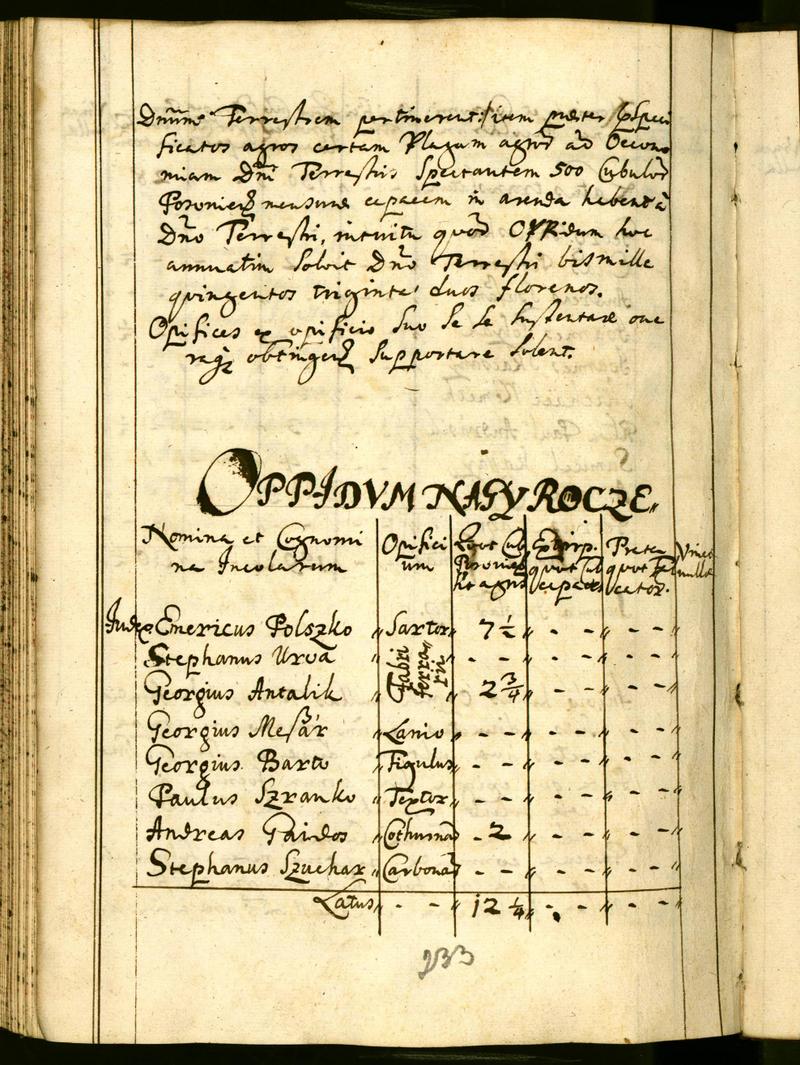 Dnum Terrestrem pertinerent; item praeter speci
ficatos agros certam Plagam agrorũ ad Oecono
miam Dni Terrestris Spectantem 500 Cubulorũ
Posonien mensurae capacem in arenda habent à
Dno Terrestri, intuitu quorũ Oppidum hoc
annuatim Solvit Dno Terrestri bismille
quingentos triginta duos florenos.
Opifices ex opificio suo se se sustentare one
raq obtingen Supportare Solent.
OPPIDVM NAGY ROCZE
Nomina et Cognomi
na Incolarum
Opifici
um
Quot Cub
Posonien
ht agros
Extirp.
quot Cub
capaces
Prata
quot fal
cator.
Vineae
nullae
Judex Emericus Polszko " Sartor " 7 ½ " - - " - - "
Stephanus Urva " Fabri ferrarii " - - " - - " - - "
Georgius Antalik " " 2 ¾ " - - " - - "
Georgius Mesár " Lanio " - - " - - " - - "
Georgius Barto " Figulus " - - " - - " - - "
Paulus Szranko " Textor " - - " - - " - - "
Andreas Gaidos " Cothurna " - 2 " - - " - - "
Stephanus Szuchar " Carbona " - - " - - " - - "
Latus " - - " 12 ¼ " - - " - - "
233